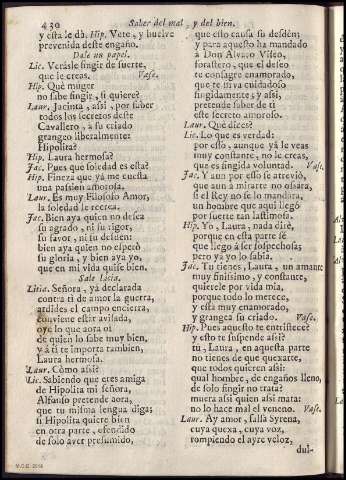 430
Saber del mal, y del bien.
y esta le dà. Hip. Vete, y buelve
prevenida deste engaño.
Dale un papel.
Lic. Veràsle fingir de suerte,
que le creas. Vase.
Hip. Què muger
no sabe fingir, si quiere?
Laur. Jacinta, assi, por saber
todos los secretos deste
Cavallero, à su criado
grangeo liberalmente:
Hipolita?
Hip. Laura hermosa?
Jac. Pues què soledad es esta?
Hip. Fineza que yà me cuesta
una passion amorosa.
Laur. Es muy Filosofo Amor,
la soledad le recrea.
Jac. Bien aya quien no desea
su agrado, ni su rigor,
su favor, ni su desdèn:
bien aya quien no esperò
su gloria, y bien aya yo,
que en mi vida quise bien.
Sale Licia.
Licia. Señora, yà declarada
contra ti de amor la guerra,
ardides el campo encierra,
conviene estàr avisada,
oye lo que aora oì
de quien lo sabe muy bien,
y à ti te importa tambien,
Laura hermosa.
Laur. Còmo assi?
Lic. Sabiendo que eres amiga
de Hipolita mi señora,
Alfonso pretende aora,
que tu misma lengua diga;
si Hipolita quiere bien
en otra parte, ofendido
de solo aver presumido,
que esto causa su desdèn;
y para aquesto ha mandado
à Don Alvaro Viseo,
forastero, que el deseo
te consagre enamorado,
que te sirva cuidadoso
fingidamente; y assi,
pretende saber de ti
este secreto amoroso.
Laur. Què dices?
Lic. Lo que es verdad:
por esso, aunque yà le veas
muy constante, no le creas,
que es fingida voluntad. Vase.
Jac. Y aun por esso se atreviò,
que aun à mirarte no osàra,
si el Rey no se lo mandàra,
un hombre que aqui llegò
por suerte tan lastimosa.
Hip. Yo, Laura, nada dirè,
porque en esta parte sè
que llego à ser sospechosa;
pero yà yo lo sabìa.
Jac. Tu tienes, Laura, un amante
muy finissimo, y constante,
quierele por vida mia,
porque todo lo merece,
y està muy enamorado,
y grangea su criado. Vase.
Hip. Pues aquesto te entristece?
y esto te suspende assi?
tu, Laura, en aquesta parte
no tienes de que quexarte,
que todos quieren assi:
qual hombre, de engaños lleno,
de solo fingir no trata?
muera assi quien assi mata:
no lo hace mal el veneno. Vase.
Laur. Ay amor, falsa Syrena,
cuya quexa, cuya voz,
rompiendo el ayre veloz,
dul-